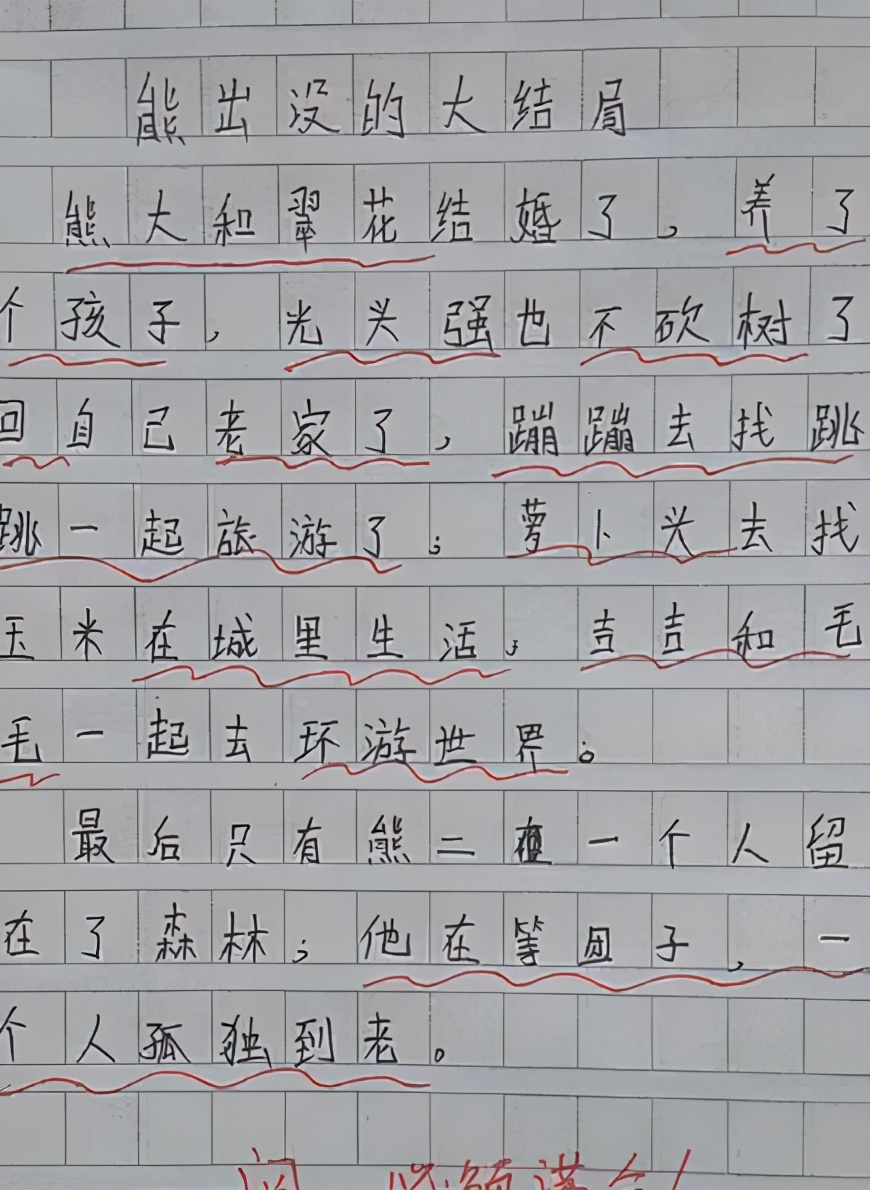 熊出没的大结局
熊大和翠花结婚了，养了
个孩子，光头强也不砍树了
回自己老家了，蹦蹦去找跳
跳一起旅游了；萝卜头去找
玉米在城里生活；吉吉和毛
毛一起去环游世界。
最后只有熊二一个人留
在了森林；他在等团子，一
个人孤独到老。
阅 必须满分！